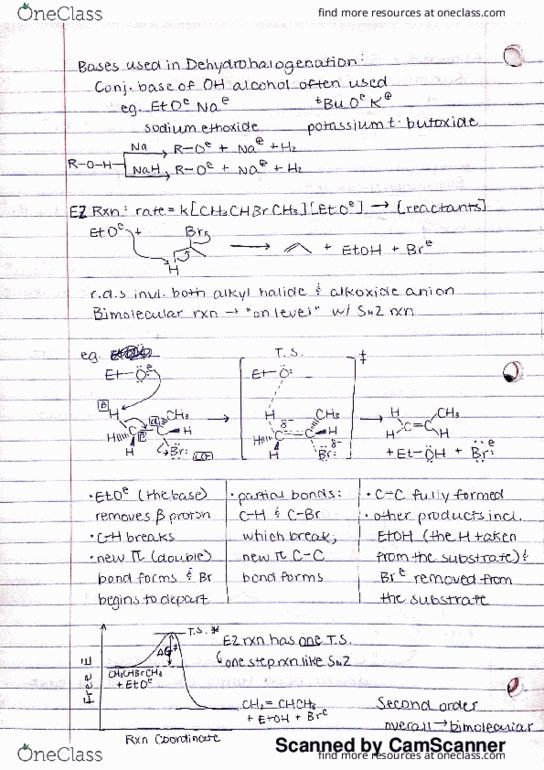 OneClass
find more resources at oneclass.com
Bases used in Dehydrohalogenation:
Conj. base of OH alcohol often used
eg. EtO⊖ Na⊕ tBuO⊖ K⊕
sodium ethoxide potassium t-butoxide
Na R-O⊖ + Na⊕ + H2
R-O-H
NaH R-O⊖ + Na⊕ + H2
E2 Rxn: rate = k[CH3CHBrCH3][EtO⊖] → [reactants]
EtO⊖ + Br
H → + EtOH + Br⊖
r.d.s invl. both alkyl halide & alkoxide anion
Bimolecular rxn → "on level" w/ SN2 rxn
eg.
T.S. ‡
Et-Ö:⊖ Et-Ö:
β H α CH3 H δ- CH3 H CH3
H C β C H H C C H C=C
H Br: LG H Br: δ- H H
+ Et-ÖH + Br:⊖
• EtO⊖ (the base) removes β proton
• C-H breaks
• new π (double) bond forms & Br begins to depart
• partial bonds: C-H & C-Br which break, new π C-C bond forms
• C-C fully formed
• other products incl. EtOH (the H taken from the substrate) & Br⊖ removed from the substrate
Free E
T.S. *
ΔG‡
E2 rxn has one T.S.
one step rxn like SN2
CH3CHBrCH3 + EtO⊖
CH2=CHCH3 + EtOH + Br⊖
Second order overall → bimolecular
Rxn Coordinate
Scanned by CamScanner
OneClass
find more resources at oneclass.com